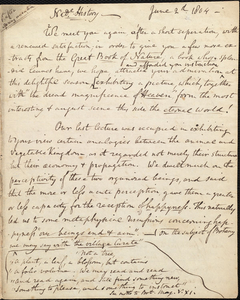 Nat. History
June 2d 1804 –
We meet you again after a short separation, with
a renewed satisfaction, in order to give you a few more ex-
tracts from the Great Book of Nature, a book always open
afforded you instruction
And cannot fail, we hope, attracting your admiration at
this delightful season, exhibiting a picture which, together with
the dread magnificence of Heaven form the most
interesting & august scene this side eternal World!
Our last lecture was occupied in exhibiting
to your view certain analogies between the animal and
Vegetable Kingdom, as it regarded not merely their structure
but their œconomy & propagation. We dwelt much on the
perceptivity of these two organized beings, and said
that the more or less acute perception gave them a greater
or less capacity for the reception of happiness. This naturally
led us to some metaphysical
"being's end & aim"
on the subject of Botany
we may say with the
Not a tree
A plant, a leaf, a blossom, but contains
A folio volume. We may read and read
And read again, and still find something new,
Something to please, and something to instruct